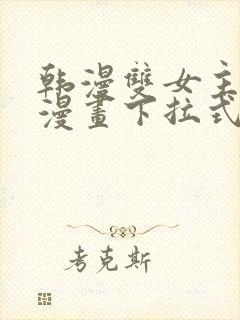 韩漫雙女主
漫畫下拉式
考克斯